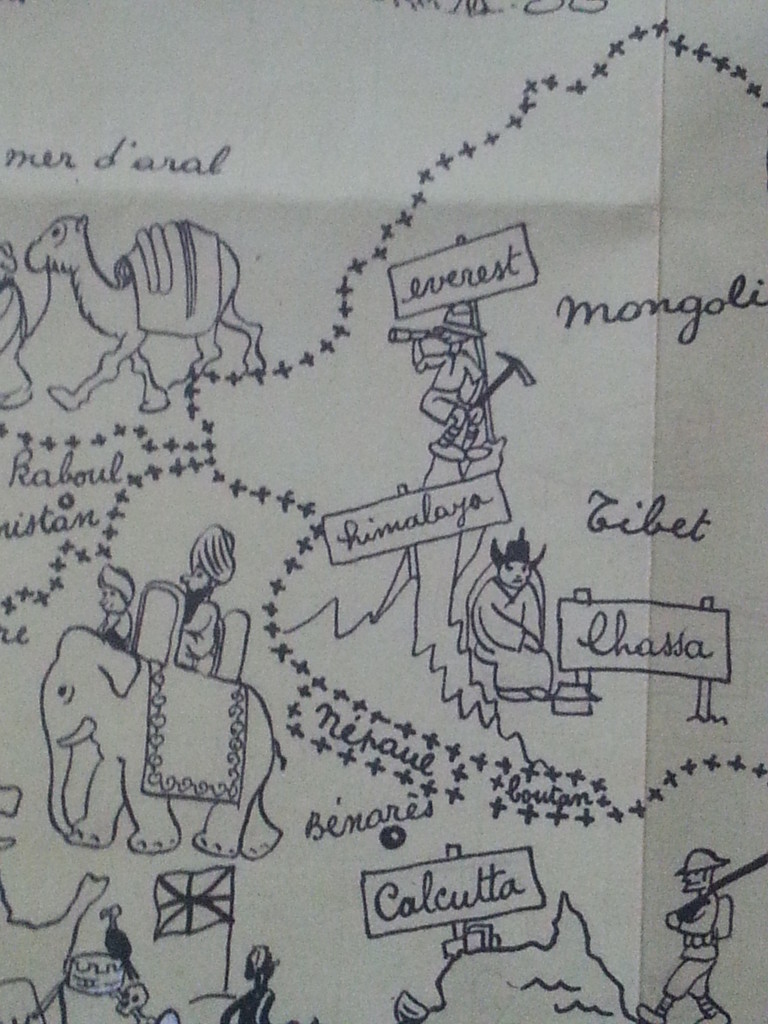 mer d'aral
everest
mongoli
Kaboul
nistan
himalaya
Tibet
re
lhassa
népaul
boutan
Bénarès
Calcutta